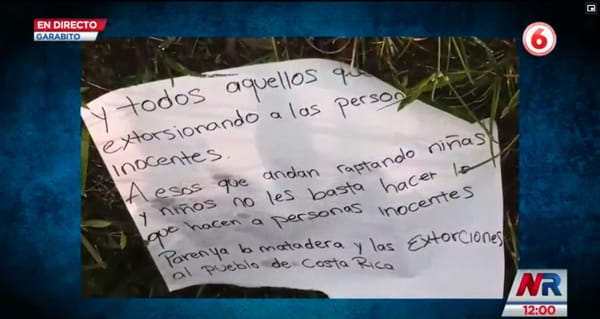 EN DIRECTO
GARABITO
6
y todos aquellos que
extorsionando a las person
inocentes.
A esos que andan raptando niñas
y niños no les basta hacer lo
que hacen a personas inocentes
Paren ya la matadera y las EXTORCIONES
al pueblo de Costa Rica
NR
12:00